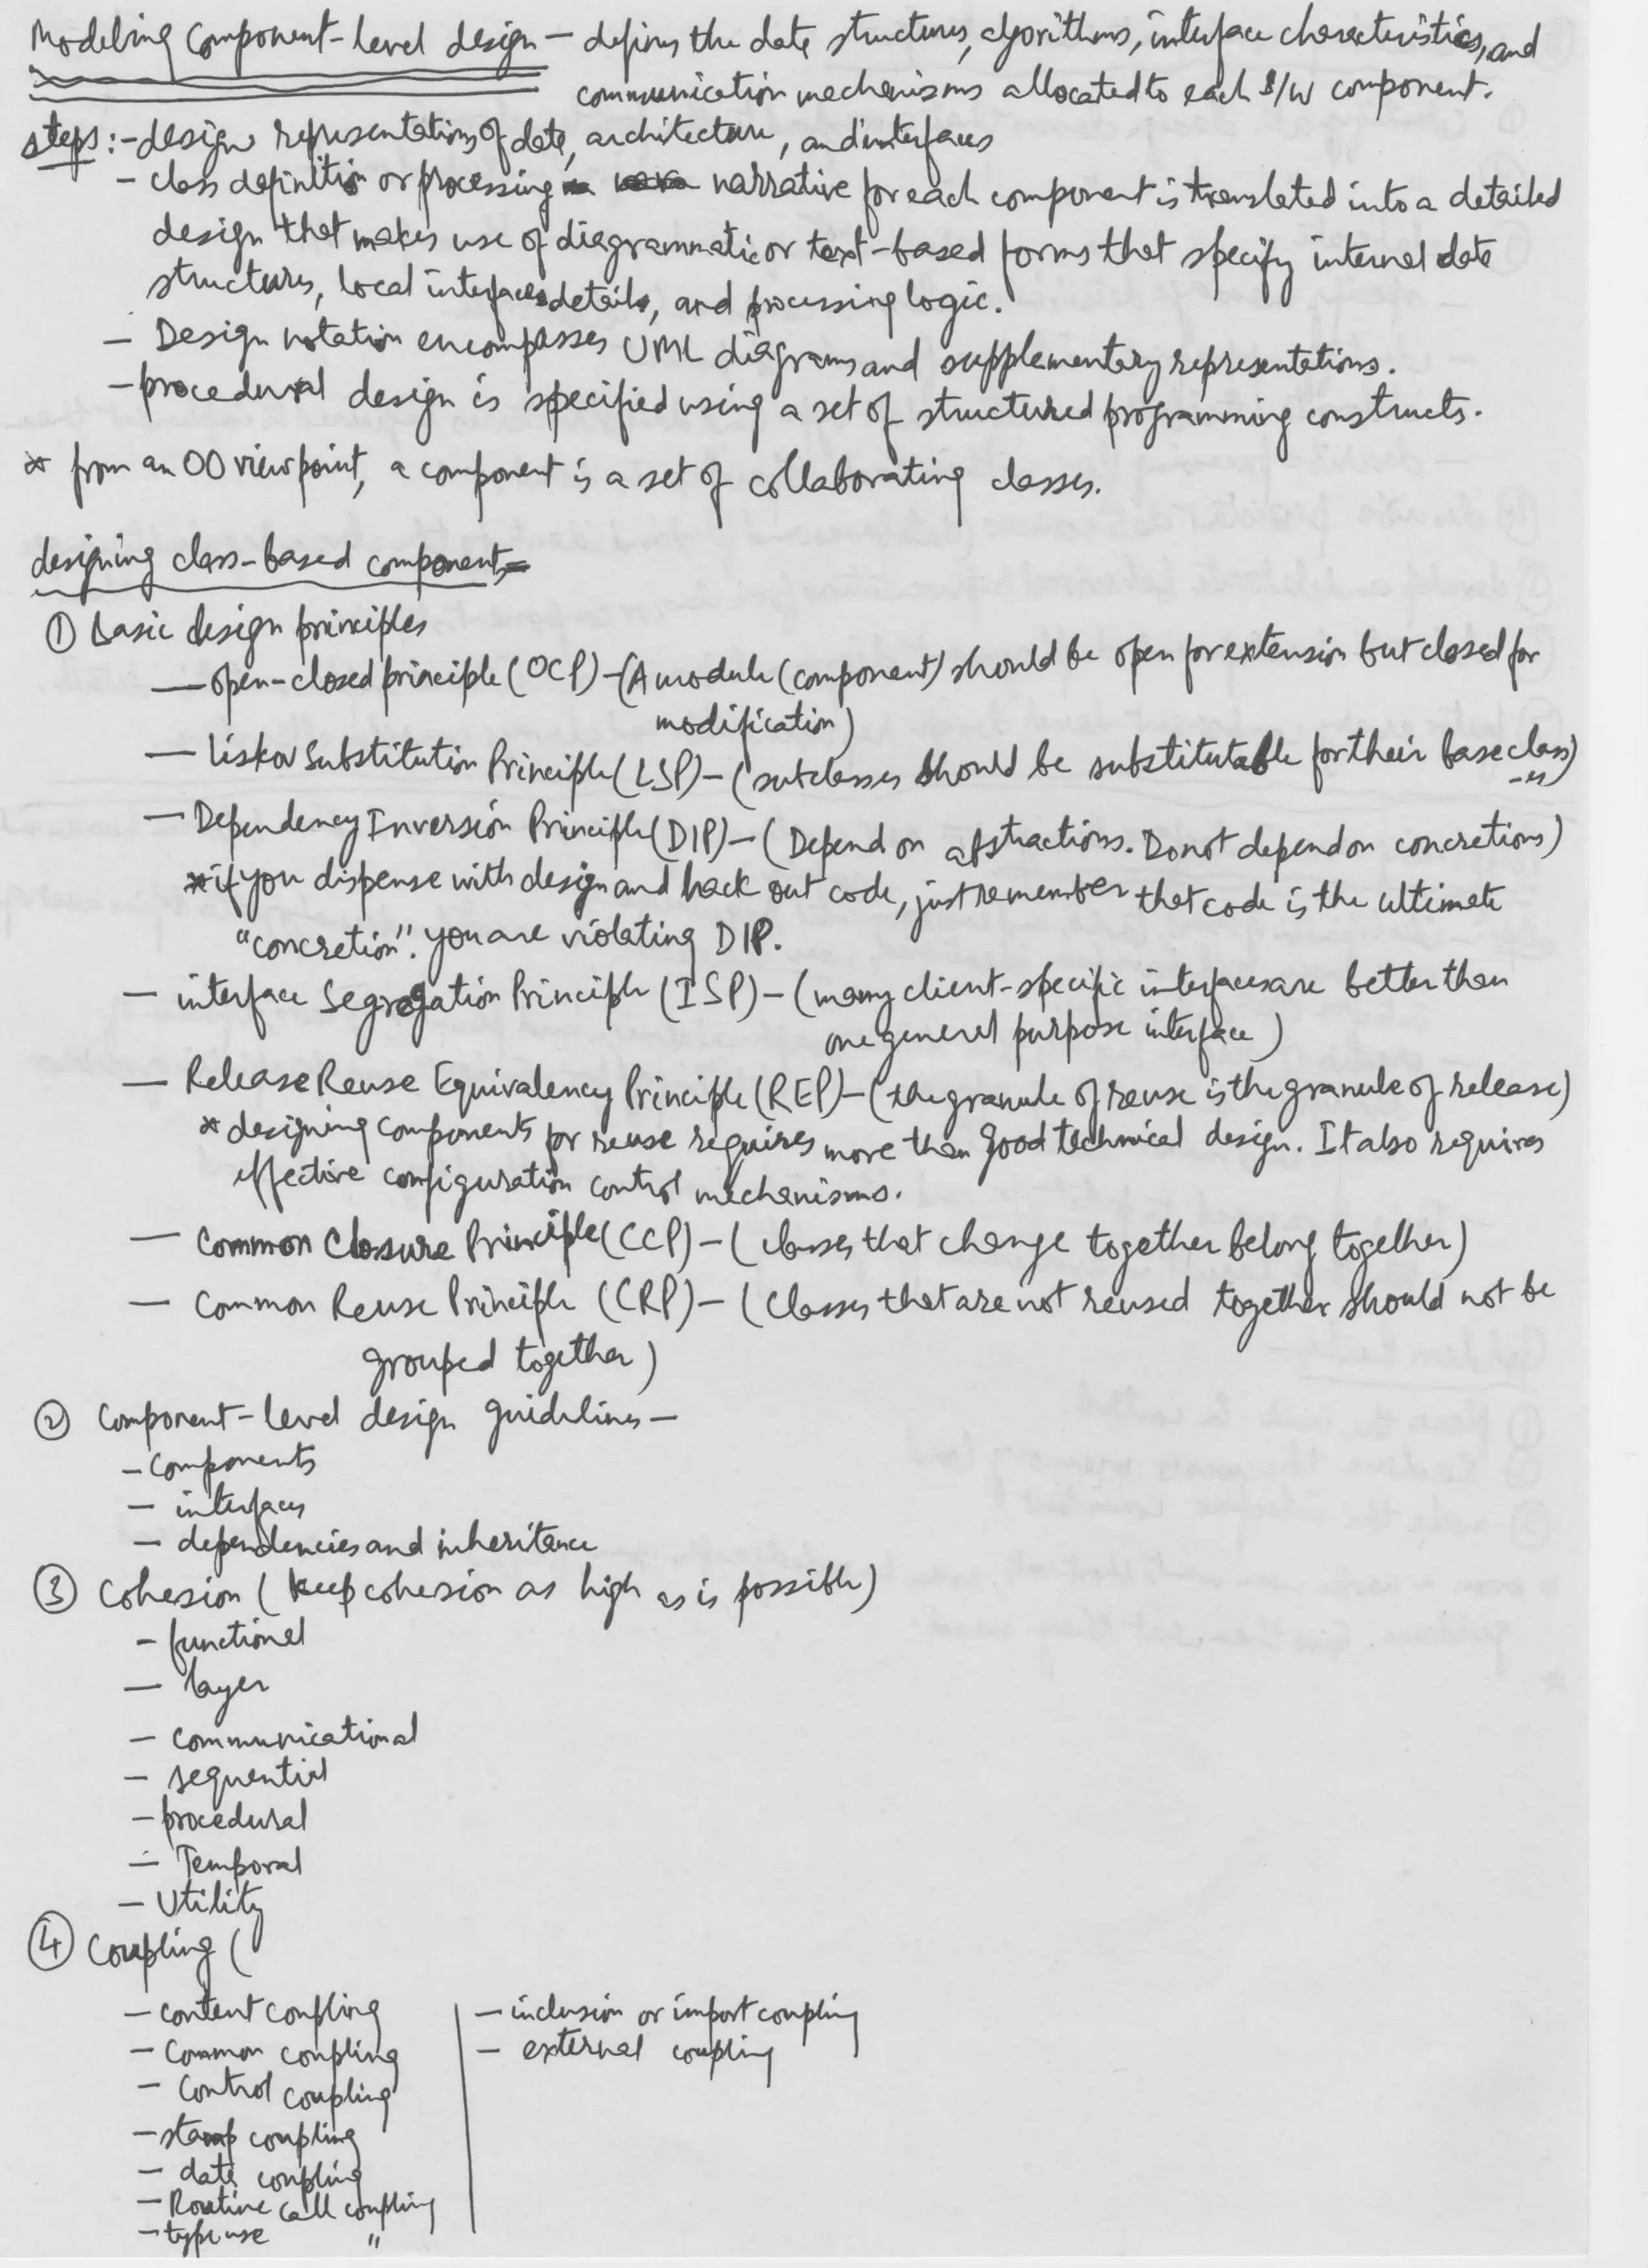 Modeling Component-level design — defines the data structures, algorithms, interface characteristics, and
communication mechanisms allocated to each S/W component.
steps:- design representations of data, architecture, and interfaces
- class definition or processing narrative for each component is translated into a detailed
design that makes use of diagrammatic or text-based forms that specify internal data
structures, local interface details, and processing logic.
- Design notation encompasses UML diagrams and supplementary representations.
- procedural design is specified using a set of structured programming constructs.
* from an OO viewpoint, a component is a set of collaborating classes.
designing class-based components
① Basic design principles
— open-closed principle (OCP) - (A module (component) should be open for extension but closed for
modification)
— Liskov Substitution Principle (LSP) - (subclasses should be substitutable for their base class)
-es
— Dependency Inversion Principle (DIP) - (Depend on abstractions. Do not depend on concretions)
* if you dispense with design and hack out code, just remember that code is the ultimate
"concretion". you are violating DIP.
— interface Segregation Principle (ISP) - (many client-specific interfaces are better than
one general purpose interface)
— Release Reuse Equivalency Principle (REP) - (the granule of reuse is the granule of release)
* designing components for reuse requires more than good technical design. It also requires
effective configuration control mechanisms.
— Common Closure Principle (CCP) - (classes that change together belong together)
— Common Reuse Principle (CRP) - (Classes that are not reused together should not be
grouped together)
② Component-level design guidelines —
- Components
- interfaces
- dependencies and inheritance
③ Cohesion (keep cohesion as high as is possible)
- functional
- layer
- communicational
- sequential
- procedural
- Temporal
- Utility
④ Coupling (
- content coupling
- Common coupling
- Control coupling
- stamp coupling
- data coupling
- Routine call coupling
- type use "
- inclusion or import coupling
- external coupling